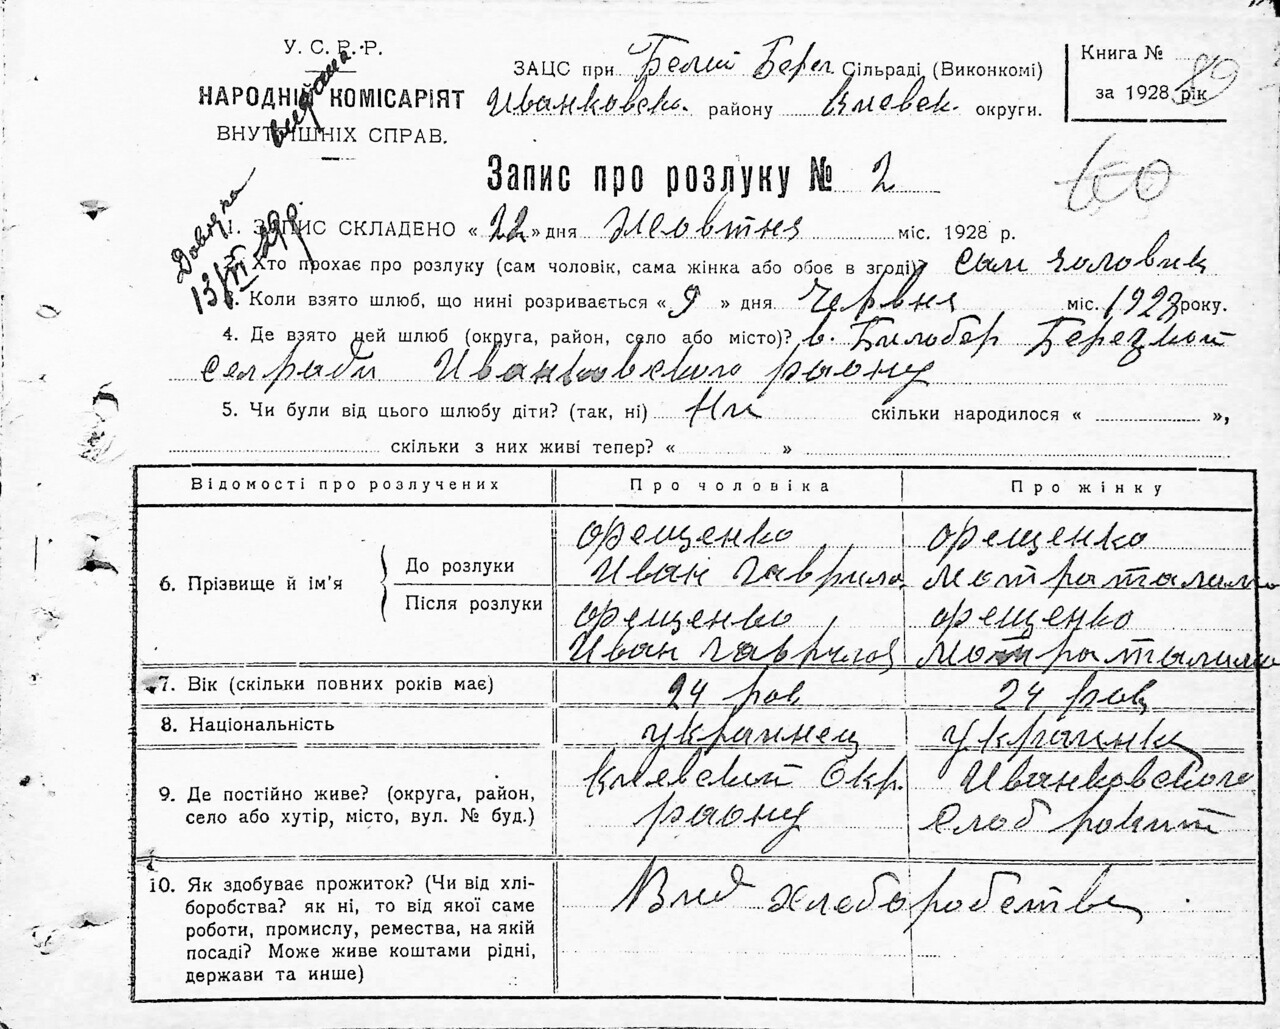 У. С. Р. Р.
НАРОДНІЙ КОМІСАРІЯТ
ВНУТРІШНІХ СПРАВ.
ЗАЦС при Белий Берег Сільраді (Виконкомі)
Иванковск. району Киевск. округи.
Книга №
за 1928 рік
89
60
Довідка видана
13/VI-29р.
Запис про розлуку № 2
1. ЗАПИС СКЛАДЕНО « 22 » дня Жовтня міс. 1928 р.
2. Хто прохає про розлуку (сам чоловік, сама жінка або обоє в згоді)? Сам чоловик
3. Коли взято шлюб, що нині розривається « 9 » дня Червня міс. 1923 року.
4. Де взято цей шлюб (округа, район, село або місто)? в. Билобер Берецкой
селради Иванковского раону
5. Чи були від цього шлюбу діти? (так, ні) Ни скільки народилося « »,
скільки з них живі тепер? « »
Відомості про розлучених Про чоловіка Про жінку
6. Прізвище й ім'я
До розлуки
орещенко Иван Гаврило
орещенко Мотра
Після розлуки
орещенко Иван Гаврилов
орещенко Мотра
7. Вік (скільки повних років має) 24 ров 24 ров
8. Національність украинец украинка
9. Де постійно живе? (округа, район, Киевский Окр. Иванковского
село або хутір, місто, вул. № буд.) раону Слоб рокит
10. Як здобуває прожиток? (Чи від хлі- Вид хлеборобства
боробства? як ні, то від якої саме
роботи, промислу, ремества, на якій
посаді? Може живе коштами рідні,
держави та инше)